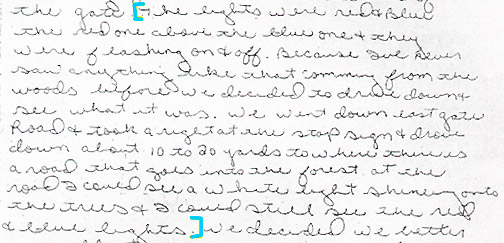 the gate [The lights were red & Blue
the red one above the blue one & they
were flashing on & off. Because I've never
saw anything like that comming from the
woods before we decided to drive down &
see what it was. We went down east gate
Road & took a right at the stop sign & drove
down about 10 to 20 yards to where there is
a road that goes into the forest. at the
road I could see a white light shining onto
the trees & I could still see the red
& blue lights.] We decided we better